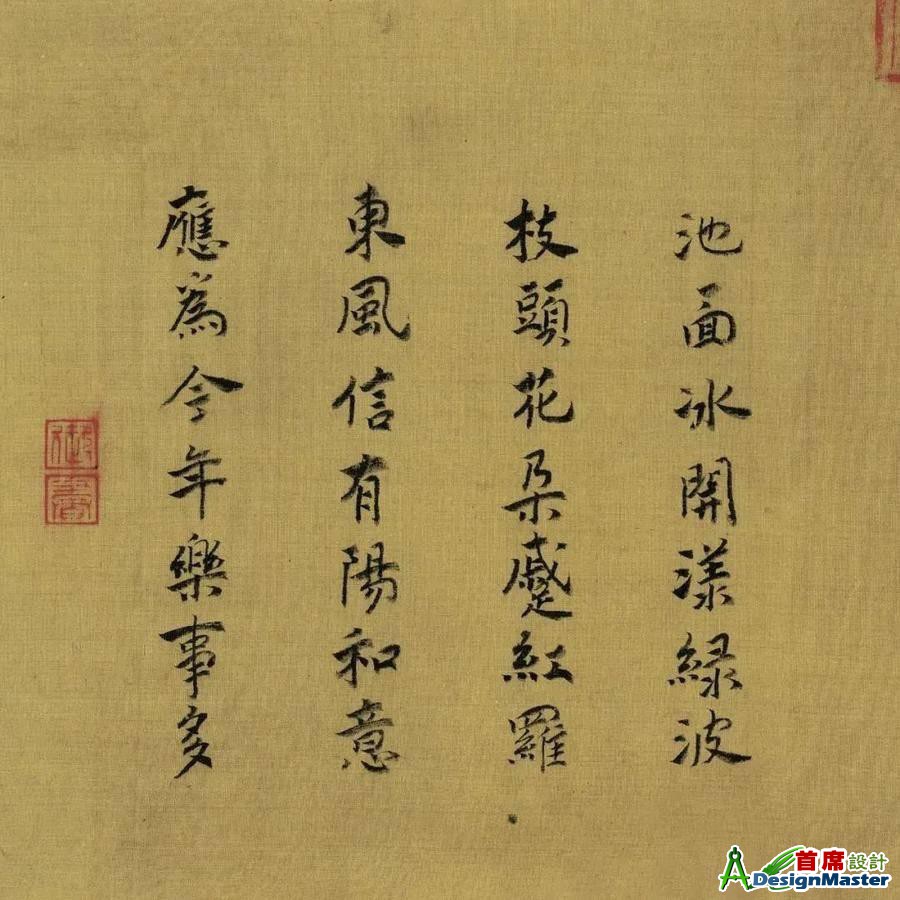 池面冰開漾綠波
枝頭花朵蹙紅羅
東風信有陽和意
應為今年樂事多
御書
首席設計
DesignMaster